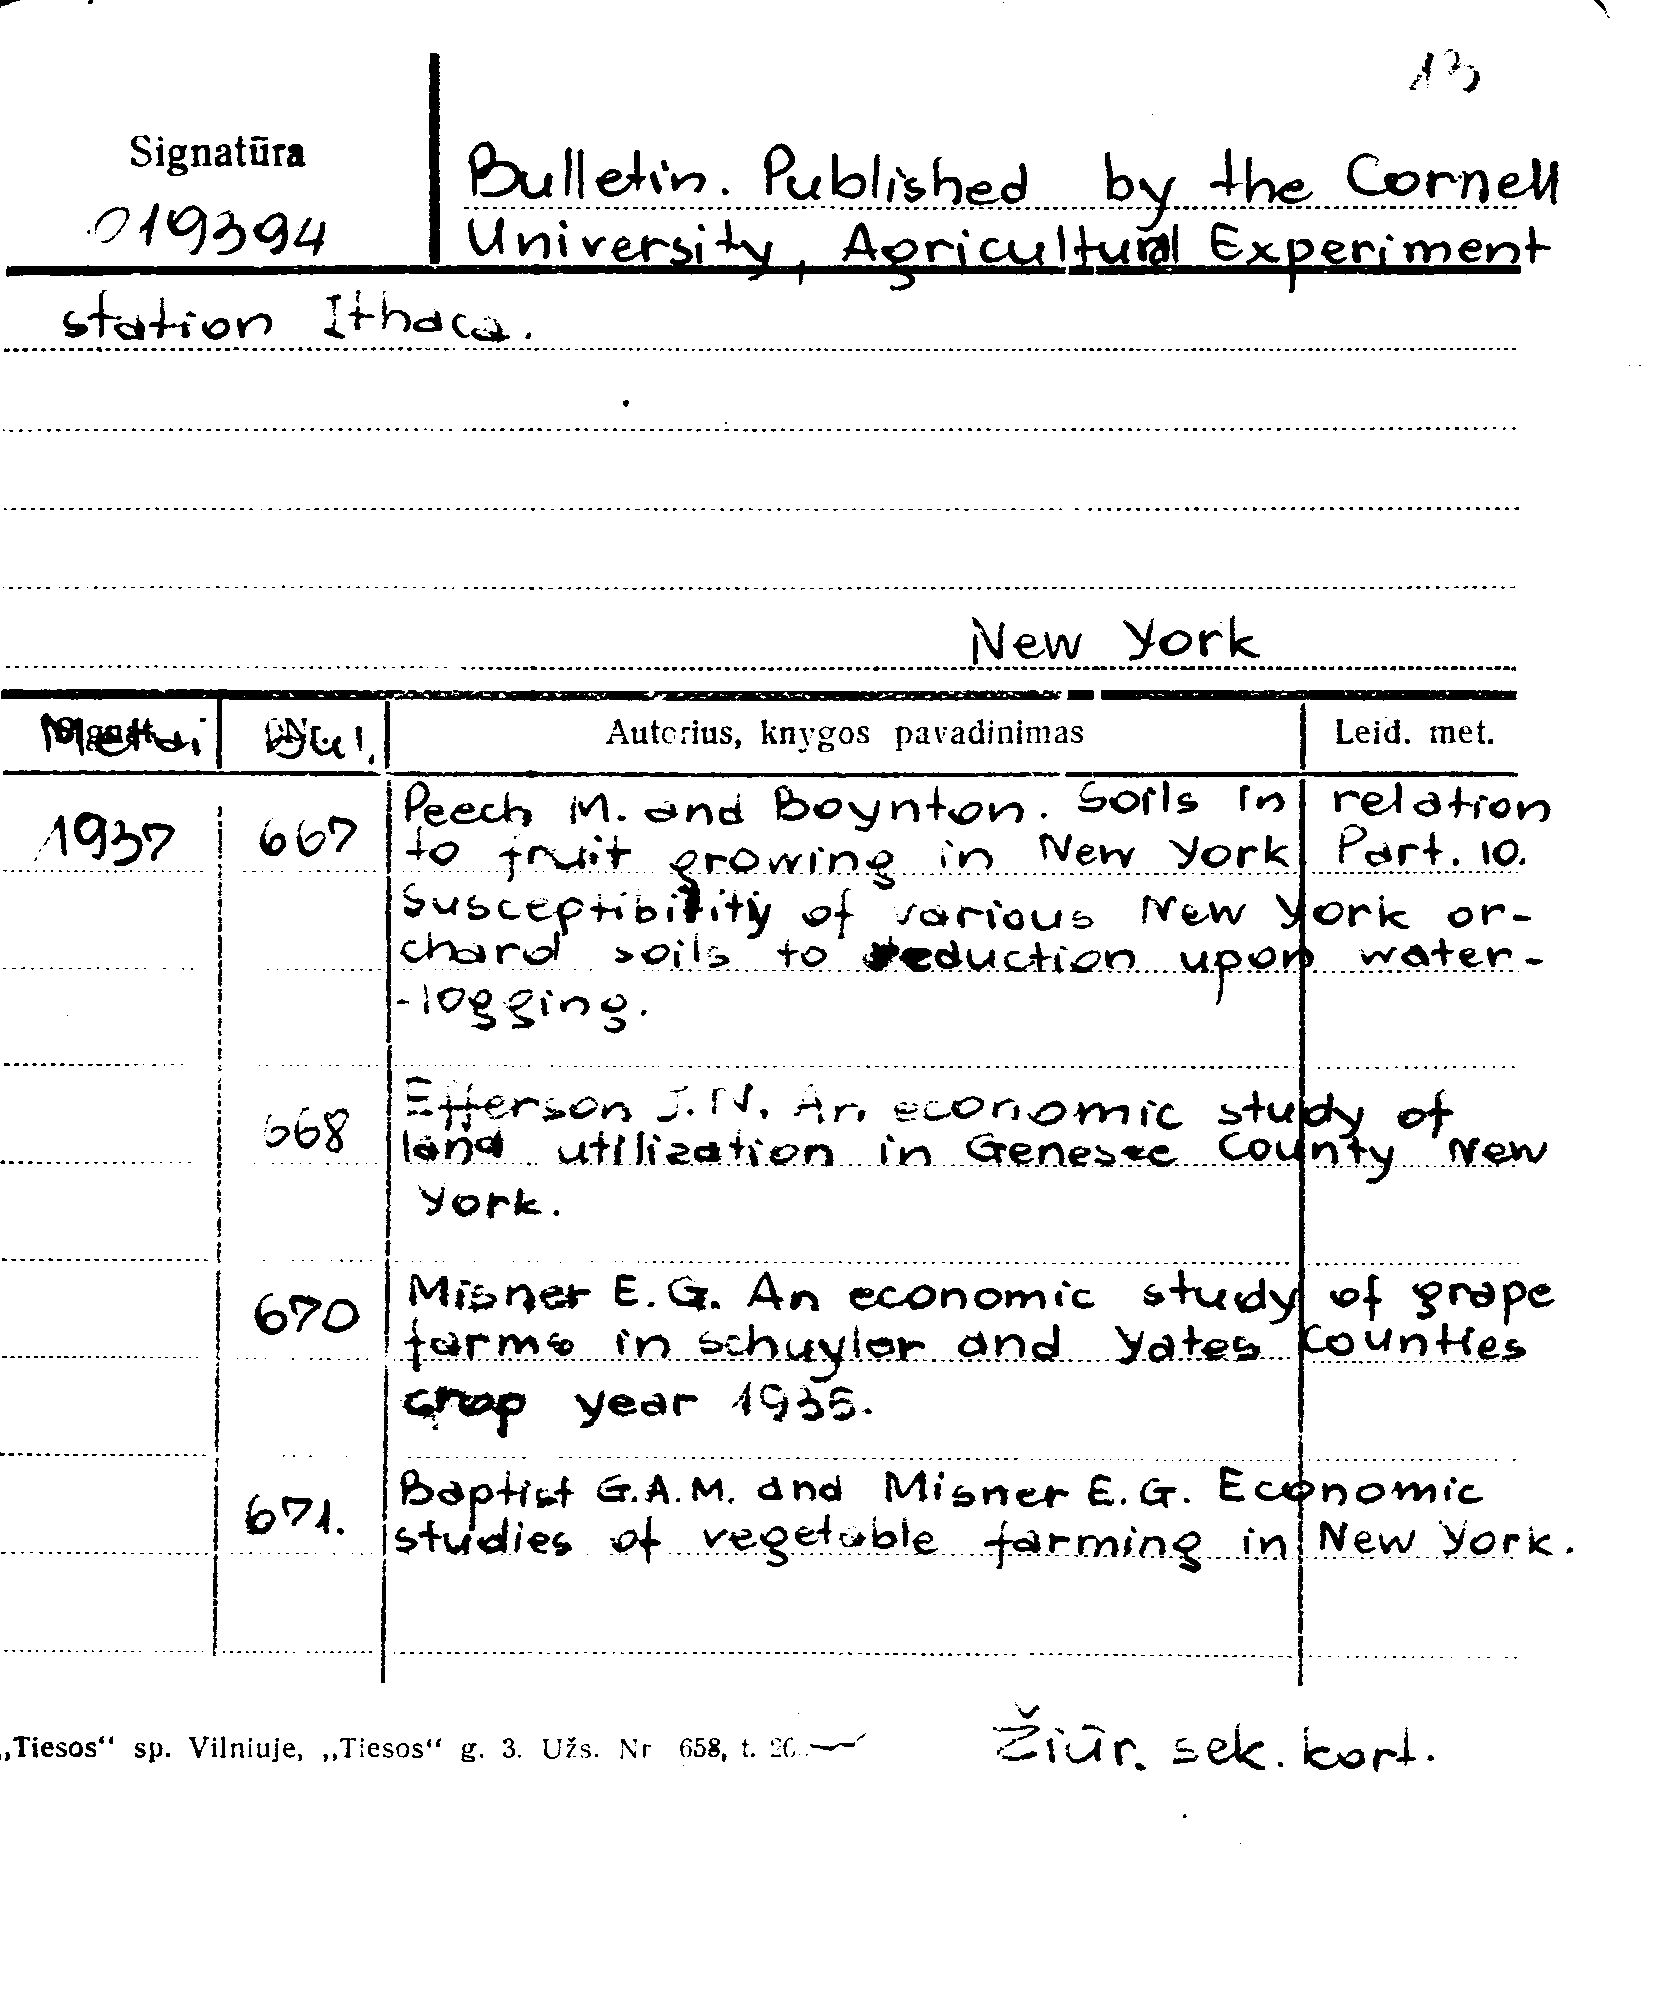 13
Signatūra
019394
Bulletin. Published by the Cornell
University, Agricultural Experiment
station Ithaca.
New York
Metai
Autorius, knygos pavadinimas
Leid. met.
1937
667
Peech M. and Boynton. Soils in relation
to fruit growing in New York Part. 10.
Susceptibility of various New York or-
chard soils to reduction upon water-
-logging.
668
Efferson J. N. An economic study of
land utilization in Genesee County New
York.
670
Misner E. G. An economic study of grape
farms in Schuyler and Yates Counties
crop year 1935.
671.
Baptist G.A.M. and Misner E. G. Economic
studies of vegetable farming in New York.
„Tiesos“ sp. Vilniuje, „Tiesos“ g. 3. Užs. Nr 658, t.
Žiūr. sek. kort.